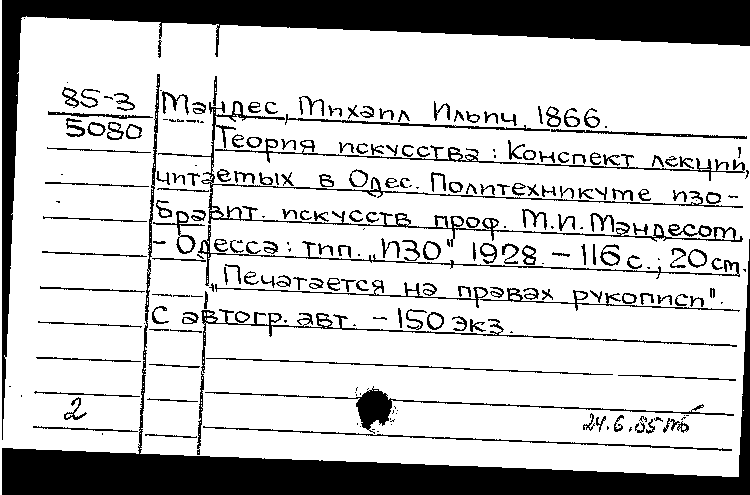 85-3 Мандес, Михаил Ильич, 1866.
5080 Теория искусства: Конспект лекций,
читаемых в Одес. Политехникуме изо-
бразит. искусств проф. М.И. Мандесом.
- Одесса: тип. „ИЗО", 1928. - 116 с.; 20 см.
„Печатается на правах рукописи".
С автогр. авт. - 150 экз.
2 24.6.85